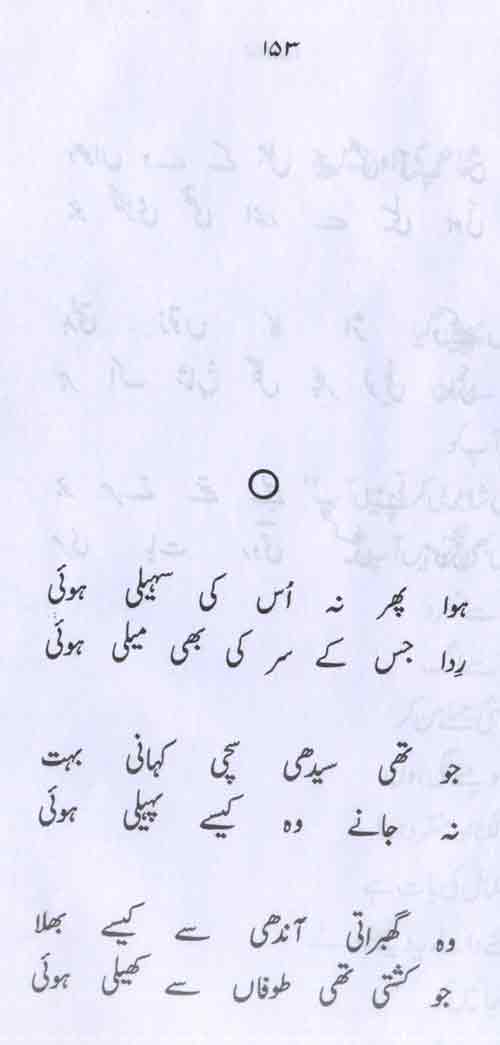 ۱۵۳
ہوا پھر نہ اُس کی سہیلی ہوئی
رِدا جس کے سر کی بھی میلی ہوئی
جو تھی سیدھی سچی کہانی بہت
نہ جانے وہ کیسے پہیلی ہوئی
وہ گھبراتی آندھی سے کیسے بھلا
جو کشتی تھی طوفاں سے کھیلی ہوئی